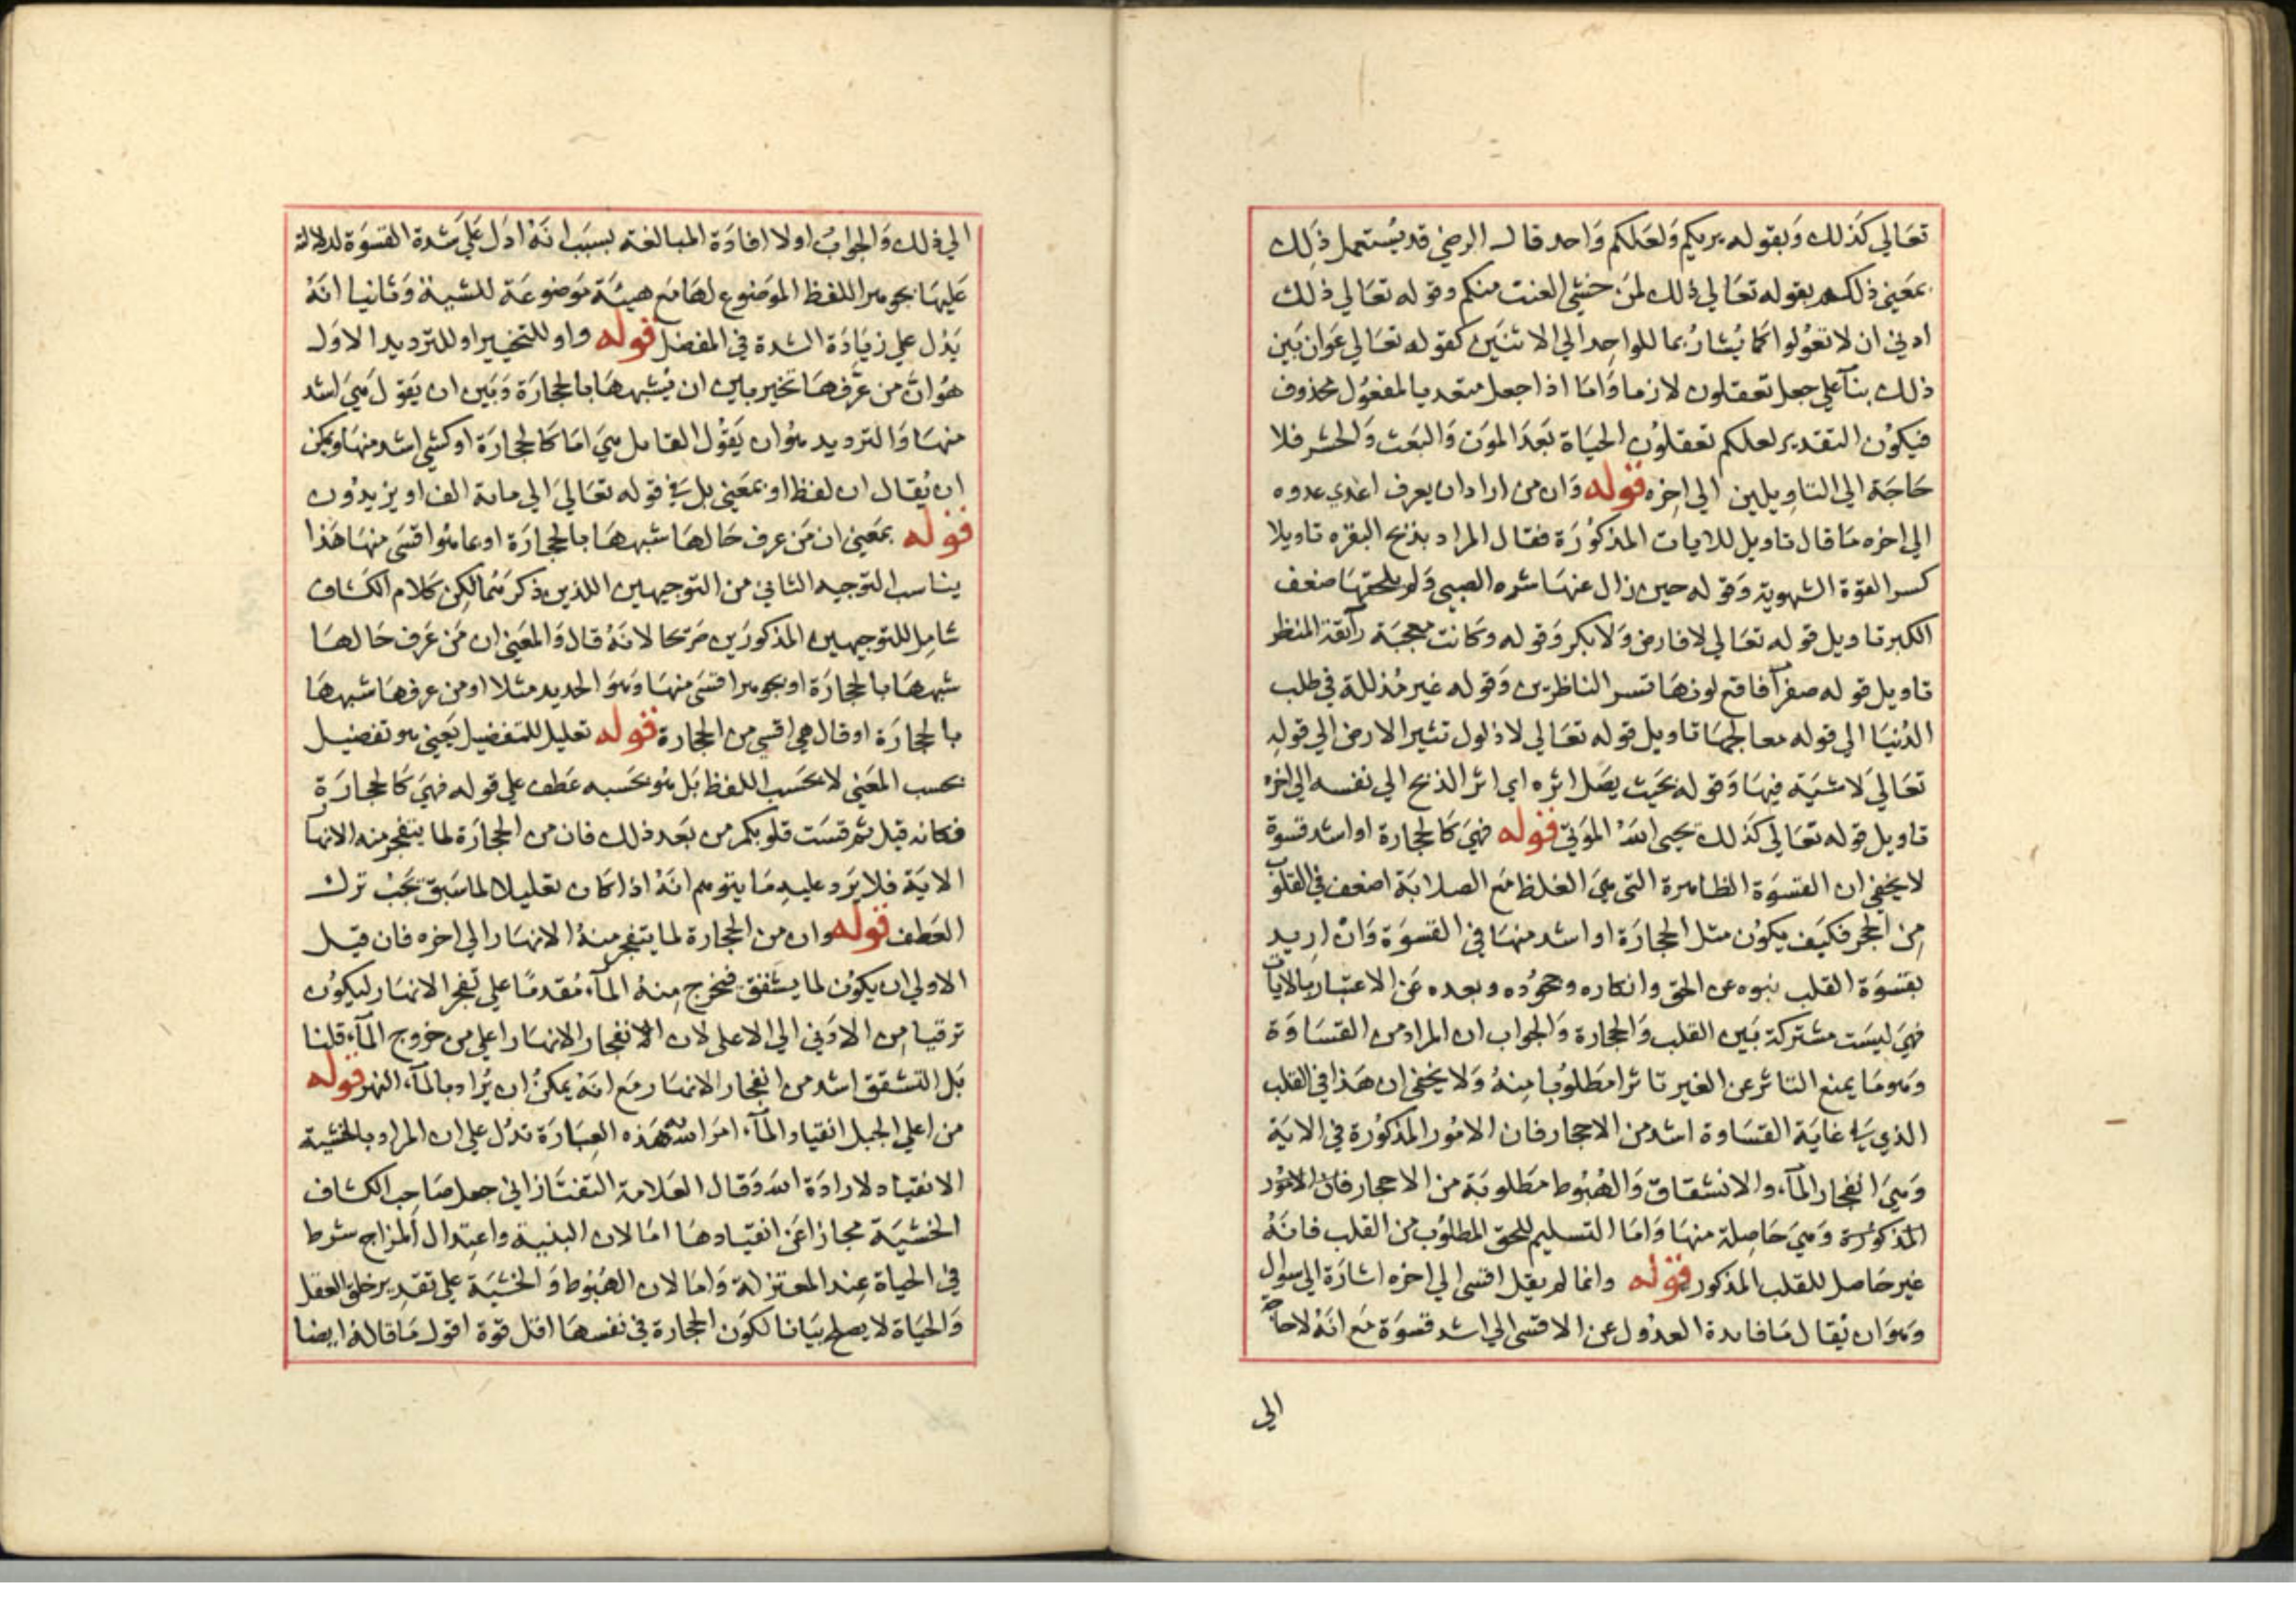 تعالي كذلك وبقوله يريكم ولعلكم واحد قال الرضي قد يستعمل ذلك
بمعني ذلكم بقوله تعالي ذلك لمن خشي العنت منكم وقوله تعالي ذلك
ادني ان لا تعولوا كما يشار بما للواحد الي الاثنين كقوله تعالي عوان بين
ذلك بنآ علي جعل تعقلون لازما واما اذا جعل متعديا لمفعول محذوف
فيكون التقدير لعلكم تعقلون الحياة بعد الموت والبعث والحشر فلا
حاجة الي التاويلين الي اخره قوله وان من اراد ان يعرف اعدي عدوه
الي اخره ما قال تاويل للايات المذكورة فقال المراد بذبح البقره تاويلا
كسر القوة الشهوية وقوله حين زال عنها شره الصبي ولم يلحقها ضعف
الكبر تاويل قوله تعالي لا فارض ولا بكر وقوله وكانت معجبة رآئقة المنظر
تاويل قوله صفرآ فاقع لونها تسر الناظرين وقوله غير مذللة في طلب
الدنيا الي قوله معالجها تاويل قوله تعالي لا ذلول تثير الارض الي قوله
تعالي لا شية فيها وقوله بحيث يصل اثره اي اثر الذبح الي نفسه الي اخره
تاويل قوله تعالي كذلك يحيي الله الموتي قوله فهي كالحجارة او اشد قسوة
لا يخفي ان القسوة الظاهرة التي هي الغلظ مع الصلابة اضعف في القلوب
من الحجر فكيف يكون مثل الحجارة او اشد منها في القسوة وان اريد
بقسوة القلب نبوه عن الحق وانكاره وجحوده وبعده عن الاعتبار بالايات
فهي ليست مشتركة بين القلب والحجارة والجواب ان المراد من القساوة
وهو ما يمنع التاثر عن الغير تاثرا مطلوبا منه ولا يخفي ان هذا في القلب
الذي في غاية القساوة اشد من الاحجار فان الامور المذكورة في الاية
وهي انفجار المآء والانشقاق والهبوط مطلوبة من الاحجار فان الامور
المذكورة وهي حاصلة منها واما التسليم للحق المطلوب من القلب فانه
غير حاصل للقلب المذكور قوله وانما لم يقل اقسي الي اخره اشارة الي سوال
وهو ان يقال ما فايدة العدول عن الاقسي الي اشد قسوة مع انه لا حاجة
الي
الي ذلك والجواب اولا افادة المبالغة بسبب انه ادل علي شدة القسوة لدلالة
عليها بجوهر اللفظ الموضوع لها مع هيئة موضوعة للشية وثانيا انه
يدل علي زيادة الشدة في المفضل قوله واو للتخيير او للترديد الاول
هو ان من عرفها تخير بين ان يشبهها بالحجارة وبين ان يقول هي اشد
منها والترديد هو ان يقول القايل هي اما كالحجارة او كشي اشد منها ويمكن
ان يقال ان لفظ او بمعني بل في قوله تعالي الي ماية الف او يزيدون
قوله بمعني ان من عرف حالها شبهها بالحجارة او عا هو اقسي منها هذا
يناسب التوجيه الثاني من التوجيهين اللذين ذكرتهما لكن كلام الكشاف
شامل للتوجيهين المذكورين صريحا لانه قال والمعني ان من عرف حالها
شبهها بالحجارة او بجوهر اقسي منها وهو الحديد مثلا او من عرفها شبهها
بالحجارة او قال هي اقسي من الحجارة قوله تعليل للتفضيل يعني هو تفضيل
بحسب المعني لا بحسب اللفظ بل هو بحسبه عطف علي قوله فهي كالحجارة
فكانه قيل ثم قست قلوبكم من بعد ذلك فان من الحجارة لما يتفجر منه الانهآ
الاية فلا يرد عليه ما يتوهم انه اذا كان تعليلا لما سبق يجب ترك
العطف قوله وان من الحجارة لما يتفجر منه الانهار الي اخره فان قيل
الاولي ان يكون لما يشقق فيخرج منه المآء مقدما علي تفجر الانهار ليكون
ترقيا من الادني الي الاعلي لان الانفجار الانهار اعلي من خروج المآء قلنا
بل التشقق اشد من انفجار الانهار مع انه يمكن ان يراد بالمآء النهر قوله
من اعلي الجبل انقياد المآء امر الله هذه العبارة تدل علي ان المراد بالخشية
الانقياد لارادة الله وقال العلامة التفتازاني جعل صاحب الكشاف
الخشية مجازا عن انقيادها اما لان البنية واعتدال المزاج شرط
في الحياة عند المعتزلة واما لان الهبوط والخشية علي تقدير خلق العقل
والحياة لا يصلح بيانا لكون الحجارة في نفسها اقل قوة اقول ما قاله ايضا